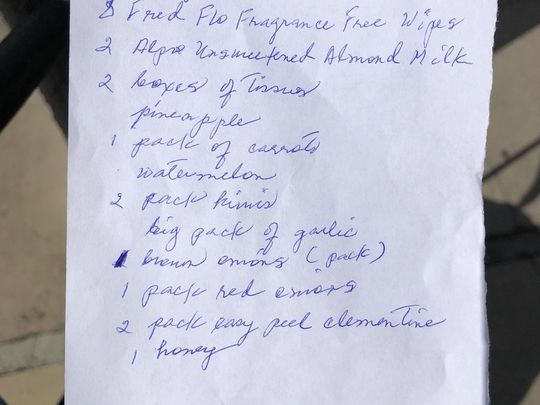 8 Fred Flo Fragrance Free Wipes
2 Alpro Unsweetened Almond Milk
2 boxes of Tissues
pineapple
1 pack of carrots
watermelon
2 pack kiwis
big pack of garlic
brown onions (pack)
1 pack red onions
2 pack easy peel clementine
1 honey